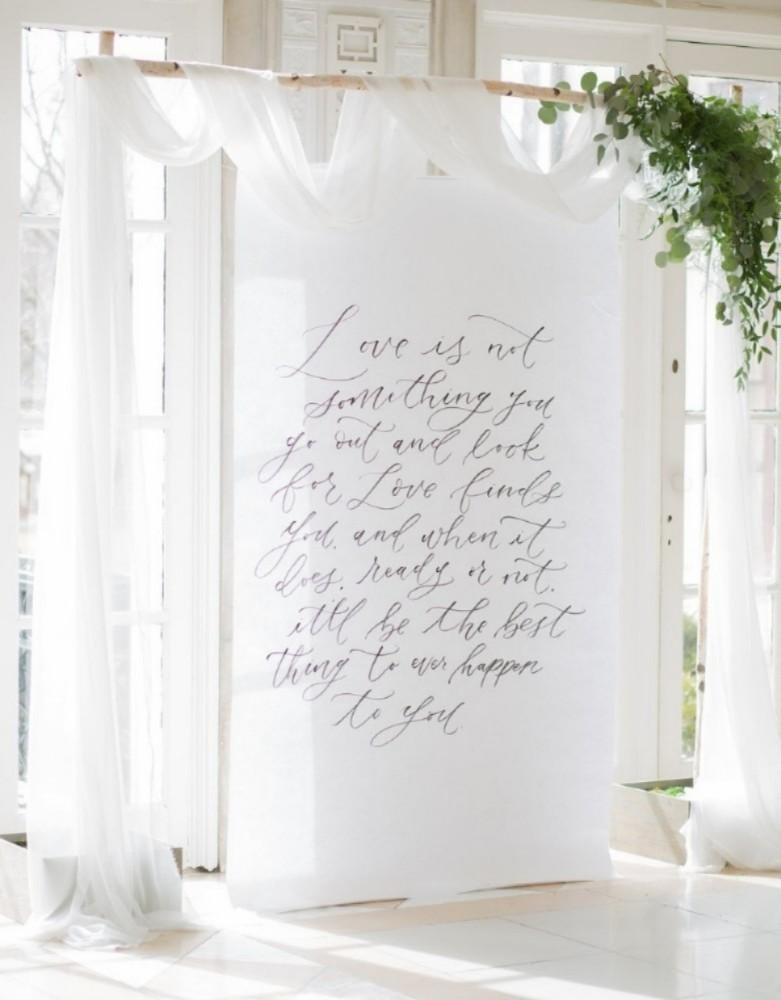 Love is not
something you
go out and look
for Love finds
you, and when it
does, ready or not,
it'll be the best
thing to ever happen
to you.